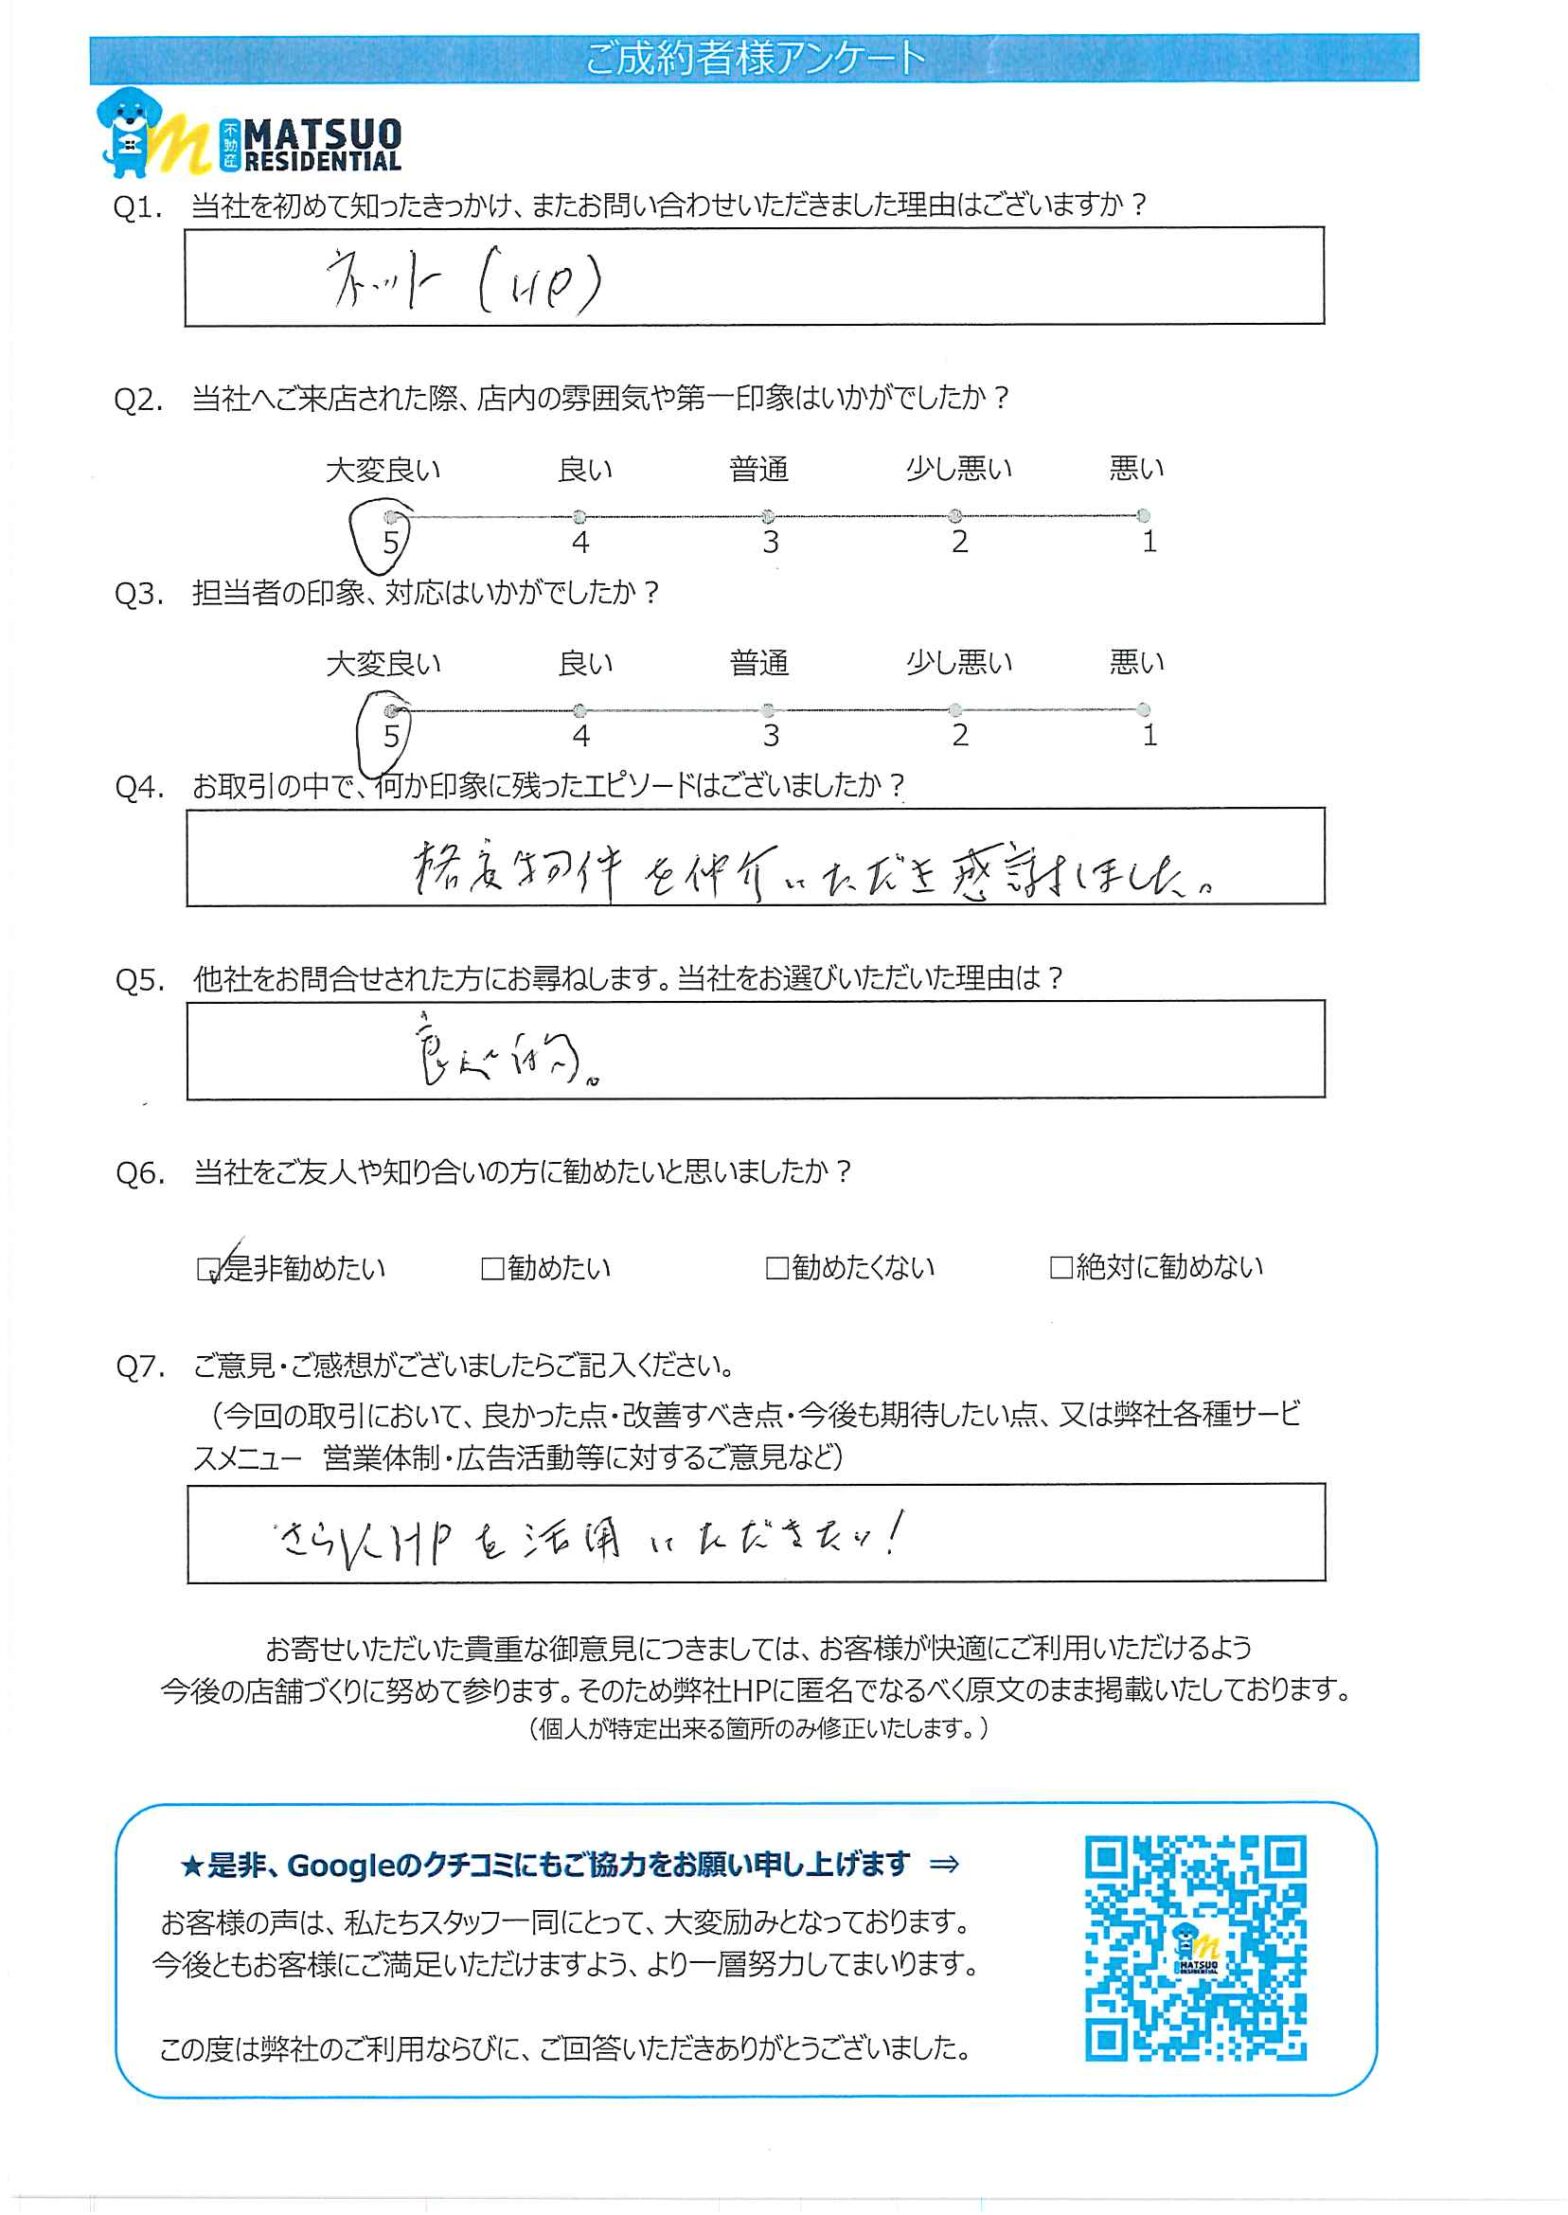 ご成約者様アンケート
不動産 MATSUO RESIDENTIAL
Q1. 当社を初めて知ったきっかけ、またお問い合わせいただきました理由はございますか？
ネット(HP)
Q2. 当社へご来店された際、店内の雰囲気や第一印象はいかがでしたか？
大変良い 良い 普通 少し悪い 悪い
5 4 3 2 1
Q3. 担当者の印象、対応はいかがでしたか？
大変良い 良い 普通 少し悪い 悪い
5 4 3 2 1
Q4. お取引の中で、何か印象に残ったエピソードはございましたか？
格安物件を仲介いただき感謝しました。
Q5. 他社をお問合せされた方にお尋ねします。当社をお選びいただいた理由は？
良心的。
Q6. 当社をご友人や知り合いの方に勧めたいと思いましたか？
☑是非勧めたい □勧めたい □勧めたくない □絶対に勧めない
Q7. ご意見・ご感想がございましたらご記入ください。
（今回の取引において、良かった点・改善すべき点・今後も期待したい点、又は弊社各種サービ
スメニュー 営業体制・広告活動等に対するご意見など）
さらにHPを活用いただきたい！
お寄せいただいた貴重な御意見につきましては、お客様が快適にご利用いただけるよう
今後の店舗づくりに努めて参ります。そのため弊社HPに匿名でなるべく原文のまま掲載いたしております。
（個人が特定出来る箇所のみ修正いたします。）
★是非、Googleのクチコミにもご協力をお願い申し上げます ⇒
お客様の声は、私たちスタッフ一同にとって、大変励みとなっております。
今後ともお客様にご満足いただけますよう、より一層努力してまいります。
MATSUO
RESIDENTIAL
この度は弊社のご利用ならびに、ご回答いただきありがとうございました。